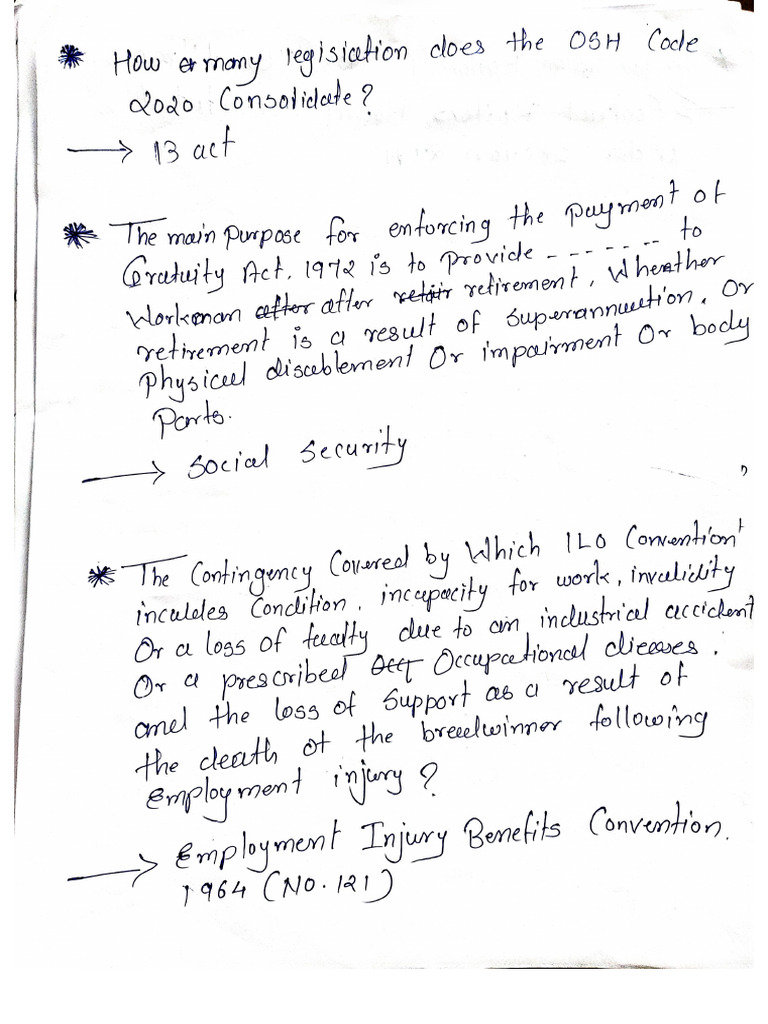 * How many legislation does the OSH Code
2020 Consolidate?
→ 13 act
* The main purpose for enforcing the payment of
Gratuity Act, 1972 is to provide ------- to
Workman after after retair retirement, Wheather
retirement is a result of superannuation, Or
physical disablement Or impairment Or body
Parts.
→ Social Security
* The Contingency Covered by Which ILO Convention
inculdes Condition, incapacity for work, invalidity
Or a loss of faculty due to an industrial accident
Or a prescribed Occ Occupational dieeases,
and the loss of support as a result of
the death of the breadwinner following
Employment injury?
→ Employment Injury Benefits Convention,
1964 (NO. 121)